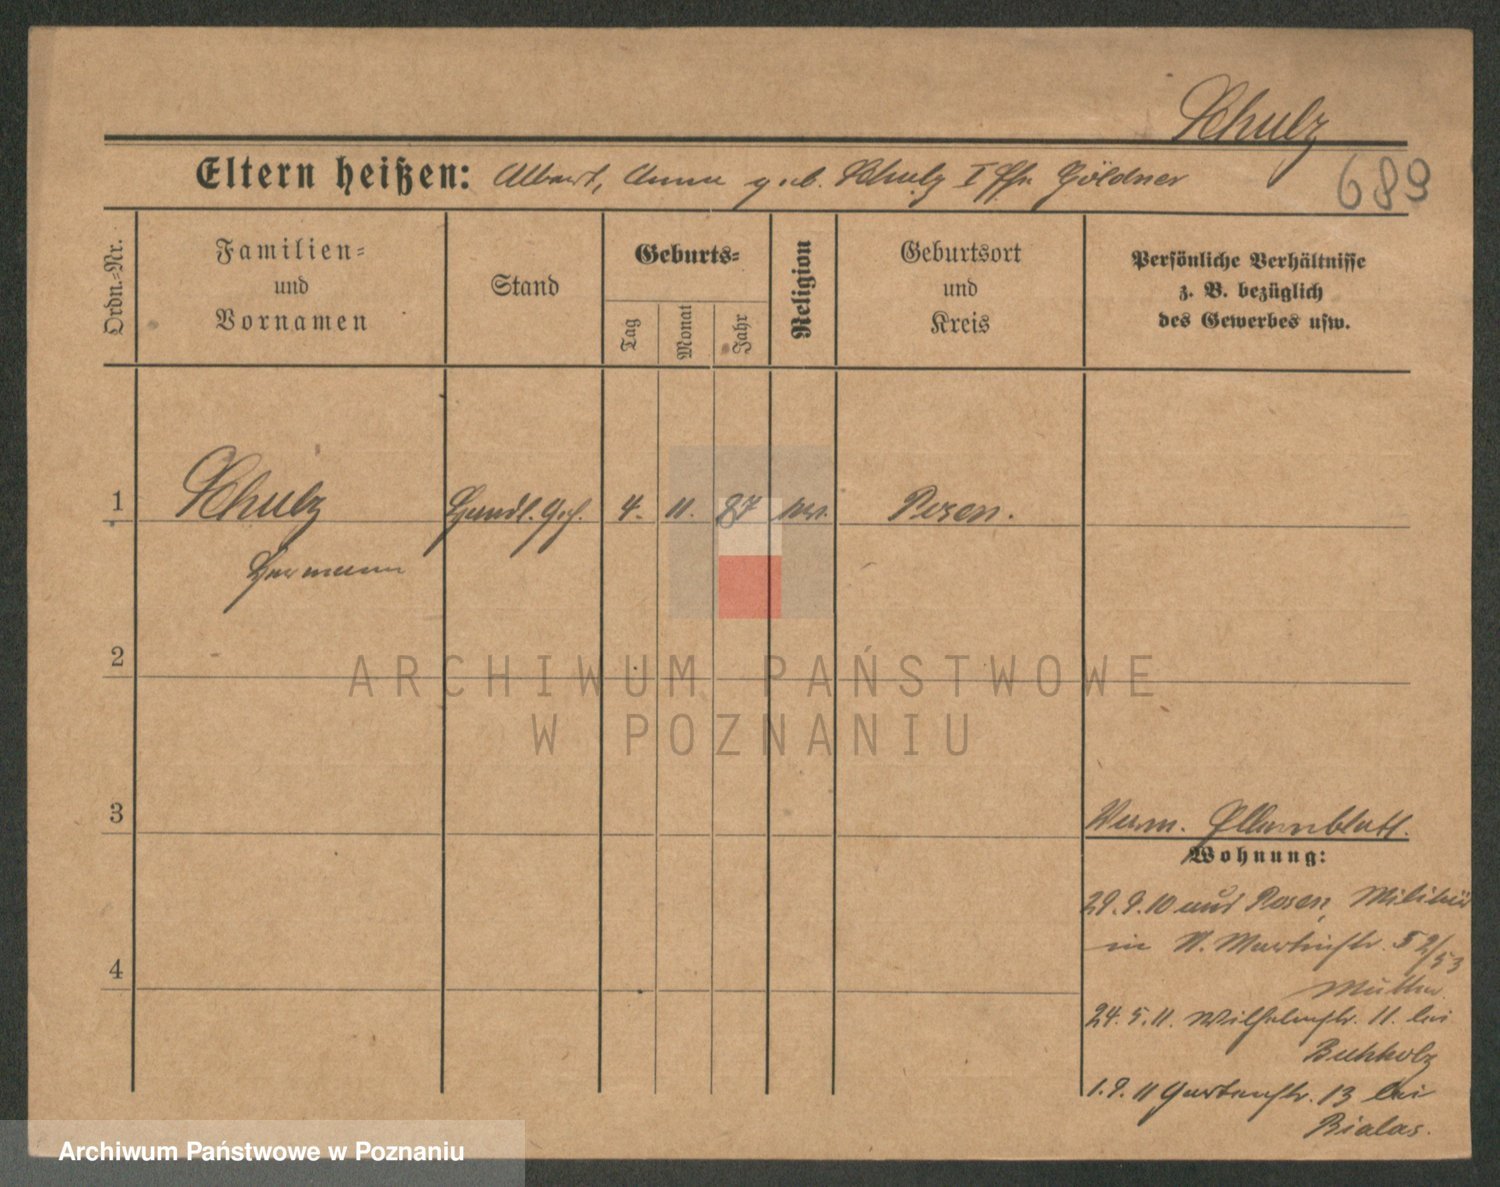 Schulz
689
Eltern heißen: Albert, Anna geb. Schulz I Ehe Göldner
Ordn.-Nr.
Familien-
und
Vornamen
Stand
Geburts-
Tag
Monat
Jahr
Religion
Geburtsort
und
Kreis
Persönliche Verhältnisse
z. B. bezüglich
des Gewerbes usw.
1 Schulz Handl. Geh. 4. 11. 87 Posen.
Hermann
2
ARCHIWUM PAŃSTWOWE
W POZNANIU
3
Verm. Elternblatt.
Wohnung:
29.9.10 aus Posen, Militär
in St. Martinstr. 52/53
4
Mutter
24.5.11. Wilhelmstr. 11. bei
Buchholz
1.9.11 Gartenstr. 13 bei
Bialas.
Archiwum Państwowe w Poznaniu